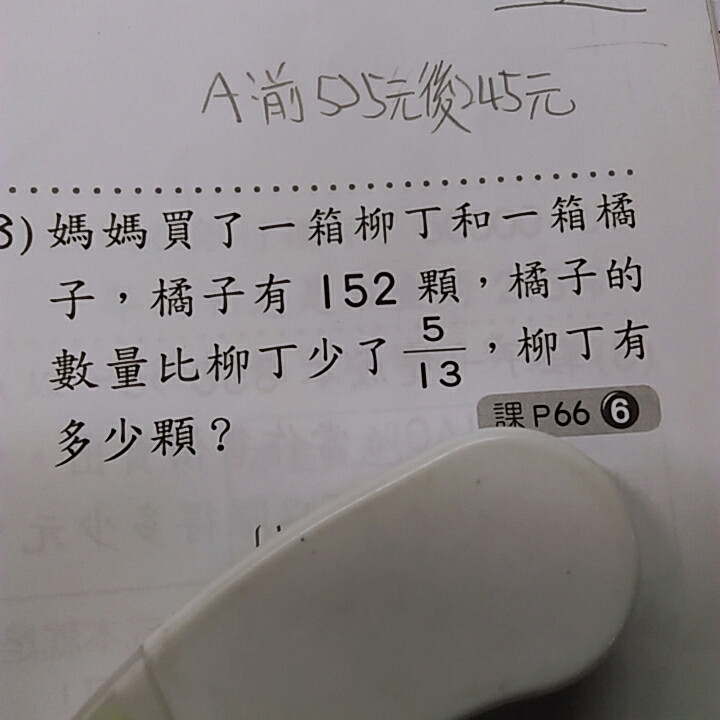 A:前525元後245元
3)媽媽買了一箱柳丁和一箱橘
子,橘子有 152 顆,橘子的
數量比柳丁少了 5/13,柳丁有
多少顆?
課P66 6